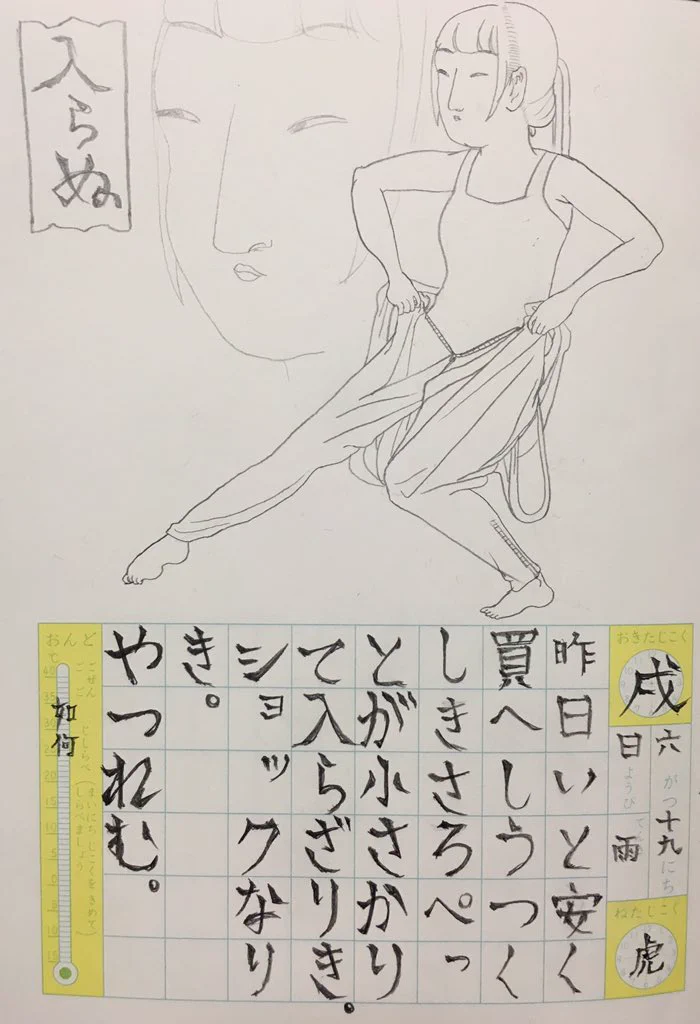 入らぬ
おきたじこく
戌
六がつ十九にち
日ようび
雨
ねたじこく
虎
昨日いと安く
買へしうつく
しきさろぺっ
とが小さかり
て入らざりき。
ショックなり
き。
やつれむ。
おんど
ごぜん
ごご
じしらべ
(まいにちじこくをきめて
しらべましょう)
如何